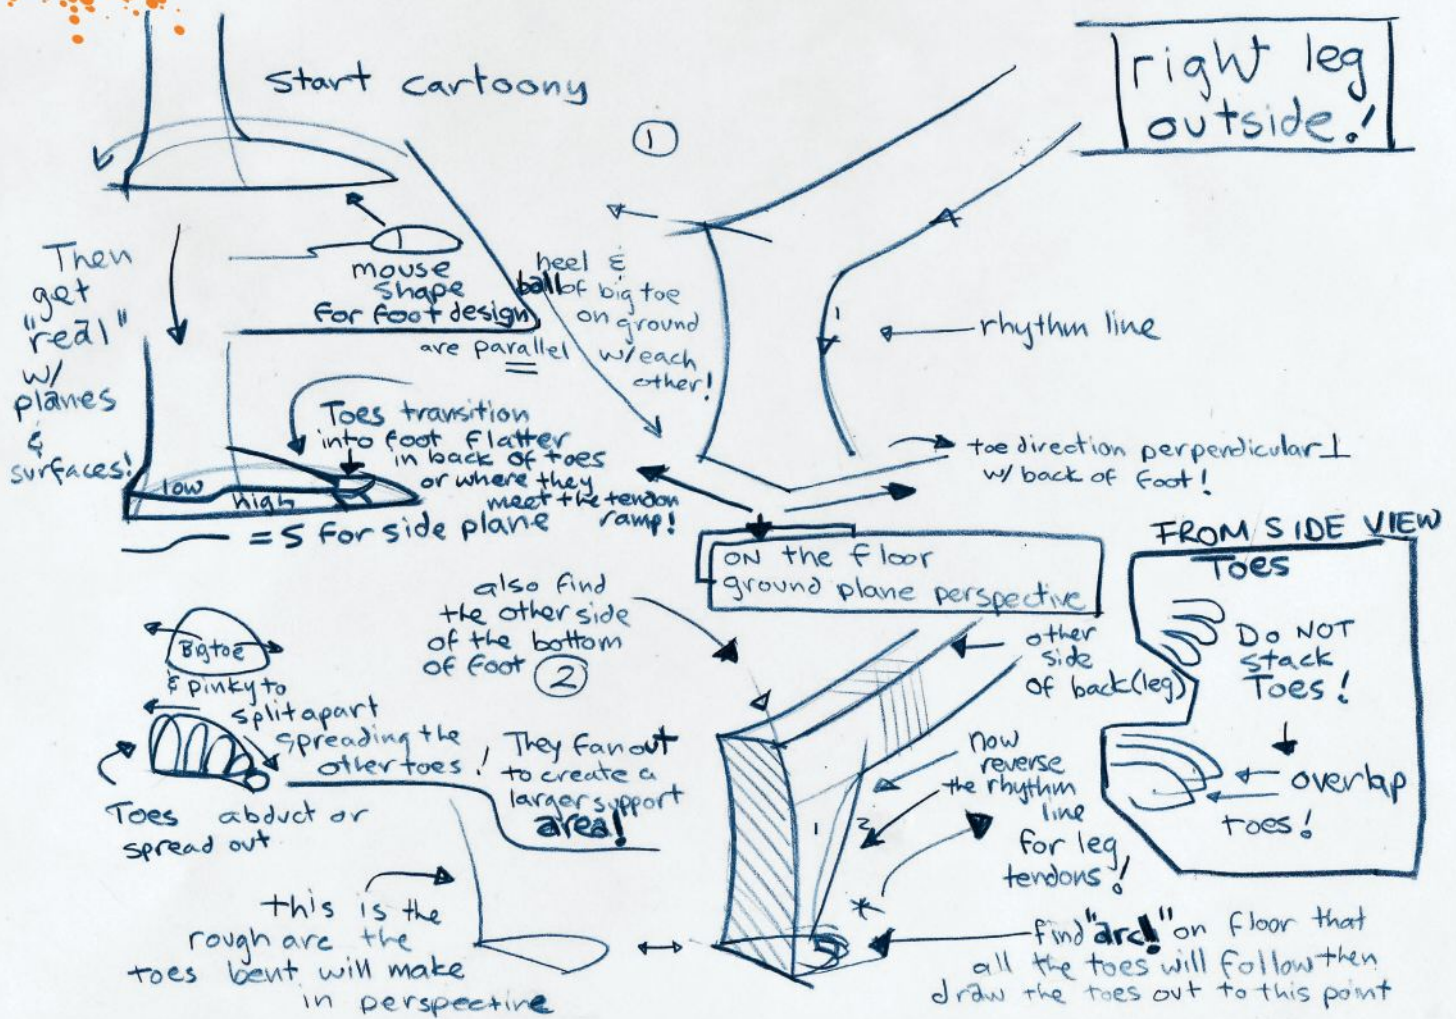 Start cartoony
right leg
outside!
1
Then
get
"real"
w/
planes
&
surfaces!
mouse
shape
for foot design
heel &
ball of big toe
on ground
are parallel
w/each
other!
rhythm line
toe direction perpendicular ⊥
w/ back of foot!
Toes transition
into foot flatter
in back of toes
or where they
meet the tendon
ramp!
low
high
= S for side plane
ON the floor
ground plane perspective
FROM SIDE VIEW
Toes
Do NOT
stack
Toes!
overlap
toes!
also find
the other side
of the bottom
of foot
2
other
side
of back (leg)
Big toe
& pinky to
split apart
spreading the
other toes!
Toes abduct or
spread out
They fan out
to create a
larger support
area!
now
reverse
the rhythm
line
for leg
tendons!
1
2
this is the
rough arc the
toes bent will make
in perspective
find "arc!" on floor that
all the toes will follow then
draw the toes out to this point